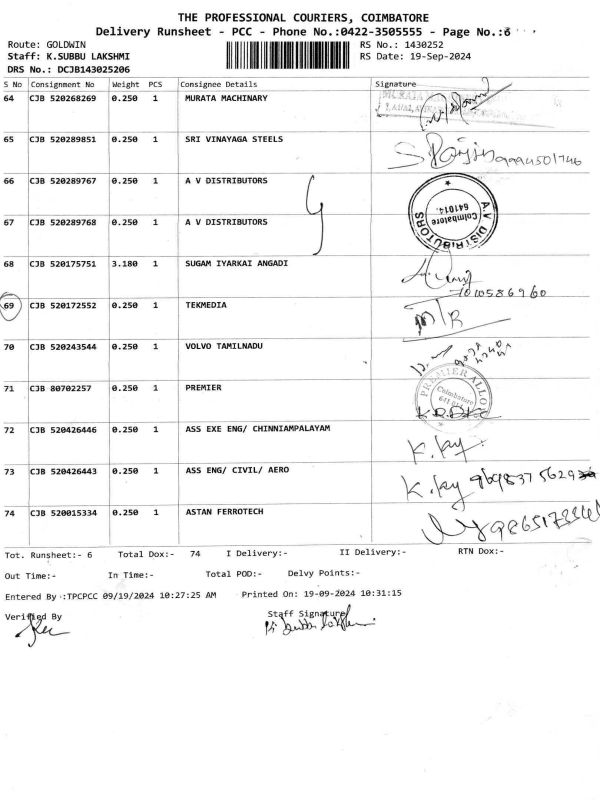 THE PROFESSIONAL COURIERS, COIMBATORE
Delivery Runsheet - PCC - Phone No.:0422-3505555 - Page No.:6
Route: GOLDWIN RS No.: 1430252
Staff: K.SUBBU LAKSHMI RS Date: 19-Sep-2024
DRS No.: DCJB143025206
S No Consignment No Weight PCS Consignee Details Signature
64 CJB 520268269 0.250 1 MURATA MACHINARY
65 CJB 520289851 0.250 1 SRI VINAYAGA STEELS 9994501746
66 CJB 520289767 0.250 1 A V DISTRIBUTORS
67 CJB 520289768 0.250 1 A V DISTRIBUTORS
A.V DISTRIBUTORS
Coimbatore
641014.
68 CJB 520175751 3.180 1 SUGAM IYARKAI ANGADI
69 CJB 520172552 0.250 1 TEKMEDIA
70 CJB 520243544 0.250 1 VOLVO TAMILNADU
71 CJB 80702257 0.250 1 PREMIER
PREMIER ALLO
Coimbatore
641 014
72 CJB 520426446 0.250 1 ASS EXE ENG/ CHINNIAMPALAYAM K.Ky.
73 CJB 520426443 0.250 1 ASS ENG/ CIVIL/ AERO K.Ky
74 CJB 520015334 0.250 1 ASTAN FERROTECH
Tot. Runsheet:- 6 Total Dox:- 74 I Delivery:- II Delivery:- RTN Dox:-
Out Time:- In Time:- Total POD:- Delvy Points:-
Entered By :TPCPCC 09/19/2024 10:27:25 AM Printed On: 19-09-2024 10:31:15
Verified By Staff Signature